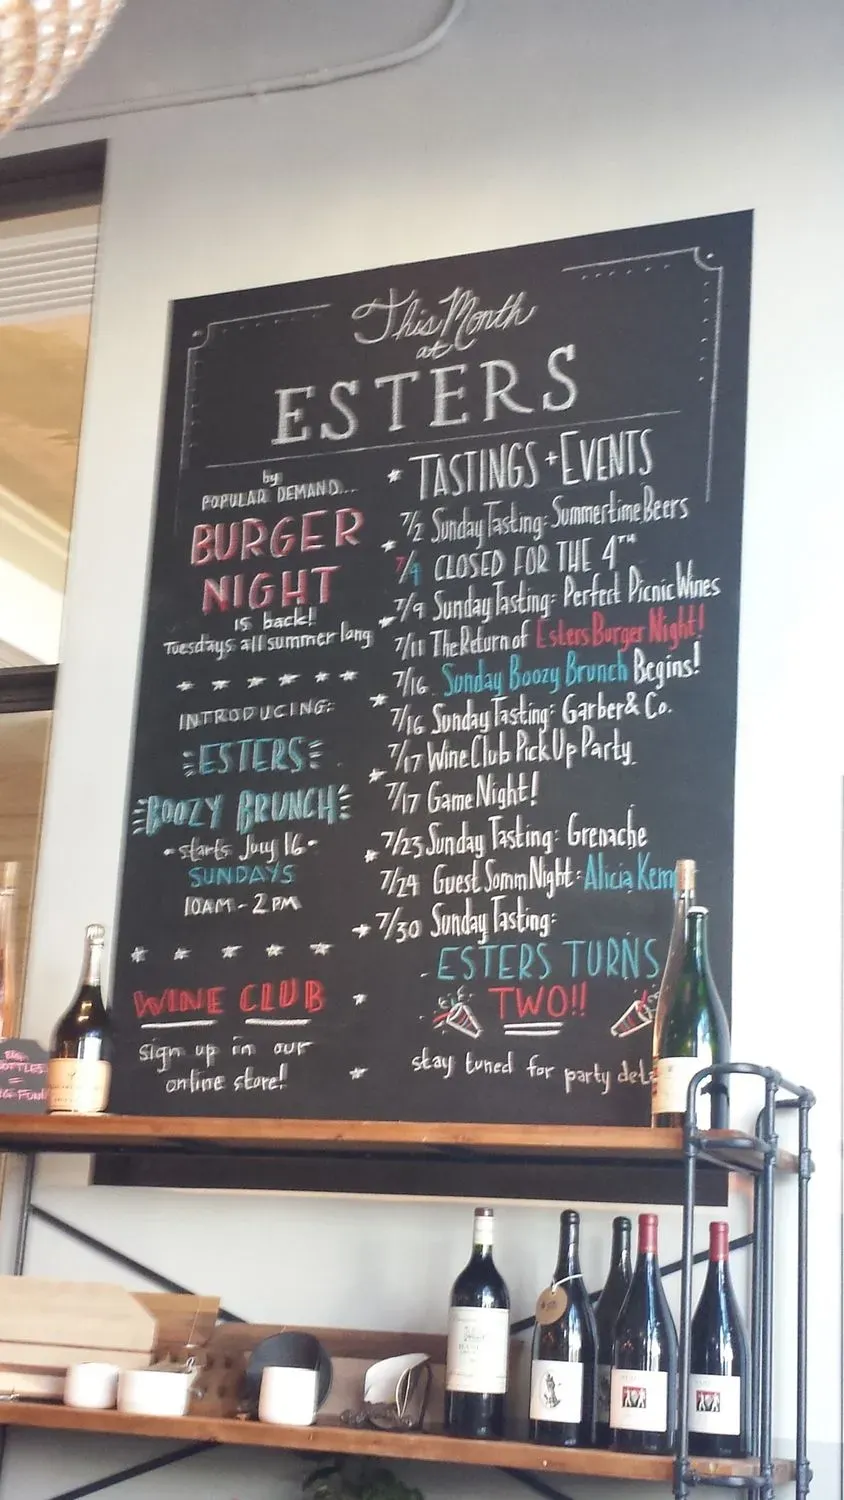 This Month
at
ESTERS
by
POPULAR DEMAND...
BURGER
NIGHT
is back!
Tuesdays all summer long
INTRODUCING:
ESTERS
BOOZY BRUNCH
- starts July 16 -
SUNDAYS
10AM - 2PM
WINE CLUB
sign up in our
online store!
TASTINGS + EVENTS
7/2 Sunday Tasting: Summertime Beers
7/4 CLOSED FOR THE 4TH
7/9 Sunday Tasting: Perfect Picnic Wines
7/11 The Return of Esters Burger Night!
7/16 Sunday Boozy Brunch Begins!
7/16 Sunday Tasting: Garber & Co.
7/17 Wine Club Pick Up Party
7/17 Game Night!
7/23 Sunday Tasting: Grenache
7/24 Guest Somm Night: Alicia Kem
7/30 Sunday Tasting:
ESTERS TURNS
TWO!!
stay tuned for party deta
BIG
BOTTLES
=
BIG FUN